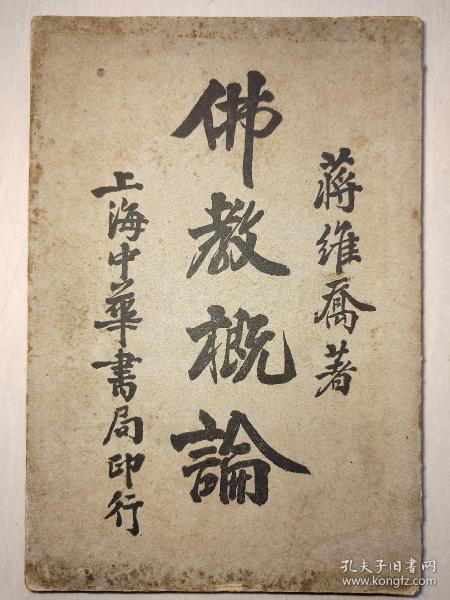 蔣維喬著
佛教概論
上海中華書局印行
孔夫子旧书网
www.kongfz.com